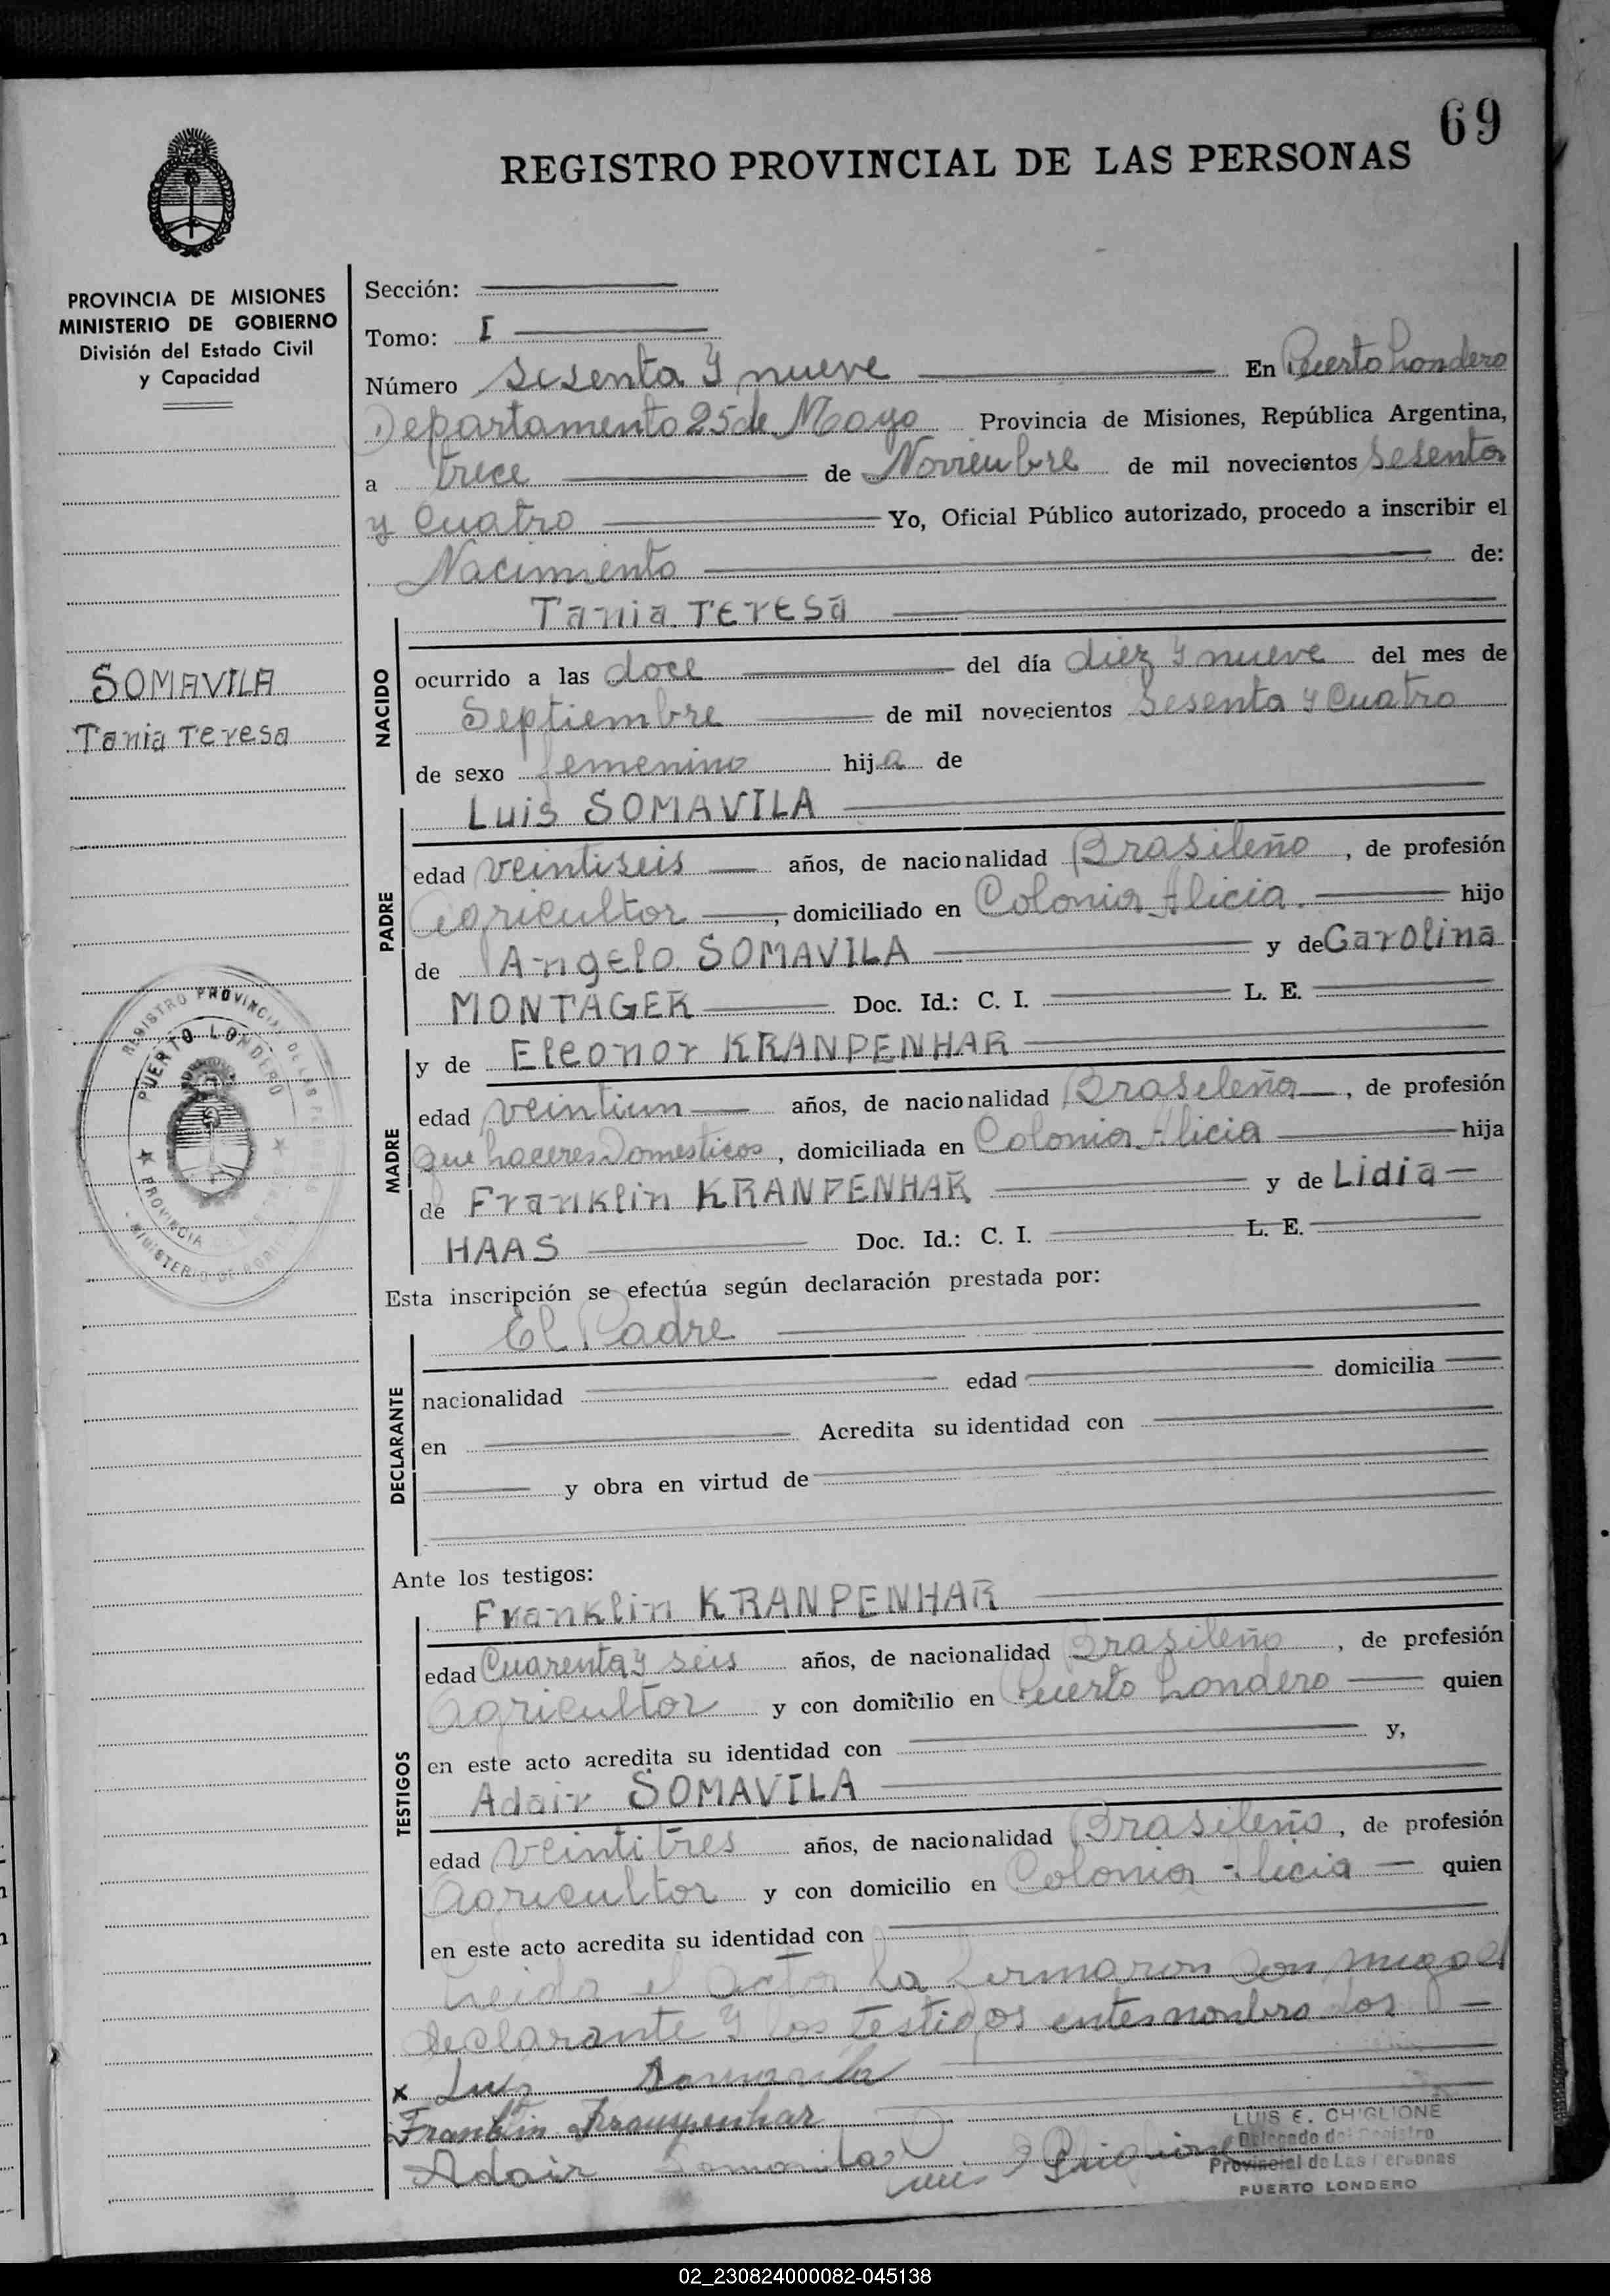 69
REGISTRO PROVINCIAL DE LAS PERSONAS
PROVINCIA DE MISIONES
MINISTERIO DE GOBIERNO
División del Estado Civil
y Capacidad
SOMAVILA
Tania Teresa
REGISTRO PROVINCIAL DE LAS PE
PUERTO LONDERO
PROVINCIA
MINISTERIO DE
Sección:
Tomo: I
Número sesenta y nueve En Puerto Londero
Departamento 25 de Mayo Provincia de Misiones, República Argentina,
a trece de Noviembre de mil novecientos sesenta
y cuatro Yo, Oficial Público autorizado, procedo a inscribir el
Nacimiento de:
Tania TERESA
NACIDO
ocurrido a las doce del día diez y nueve del mes de
Septiembre de mil novecientos Sesenta y Cuatro
de sexo femenino hija de
Luis SOMAVILA
PADRE
edad veintiseis años, de nacionalidad Brasileño, de profesión
agricultor, domiciliado en Colonia Alicia. hijo
de Angelo SOMAVILA y de Carolina
MONTAGER Doc. Id.: C. I. L. E.
y de Eleonor KRANPENHAR
MADRE
edad veintiun años, de nacionalidad Brasileña, de profesión
que haceres Domesticos, domiciliada en Colonia Alicia hija
de Franklin KRANPENHAR y de Lidia
HAAS Doc. Id.: C. I. L. E.
Esta inscripción se efectúa según declaración prestada por:
El Padre
DECLARANTE
nacionalidad edad domicilia
en Acredita su identidad con
y obra en virtud de
Ante los testigos:
Franklin KRANPENHAR
TESTIGOS
edad Cuarenta y seis años, de nacionalidad Brasileño, de profesión
agricultor y con domicilio en Puerto Londero quien
en este acto acredita su identidad con y,
Adair SOMAVILA
edad veintitres años, de nacionalidad Brasileño, de profesión
agricultor y con domicilio en Colonia Alicia quien
en este acto acredita su identidad con
Leida el acta la firmaron con migo el
declarante y los testigos antes nombrados
x Luis Somavila
Franklin Kranpenhar
Adair Somavila
LUIS E. CHIGLIONE
Delegado del Registro
Provincial de Las Personas
PUERTO LONDERO
02_230824000082-045138